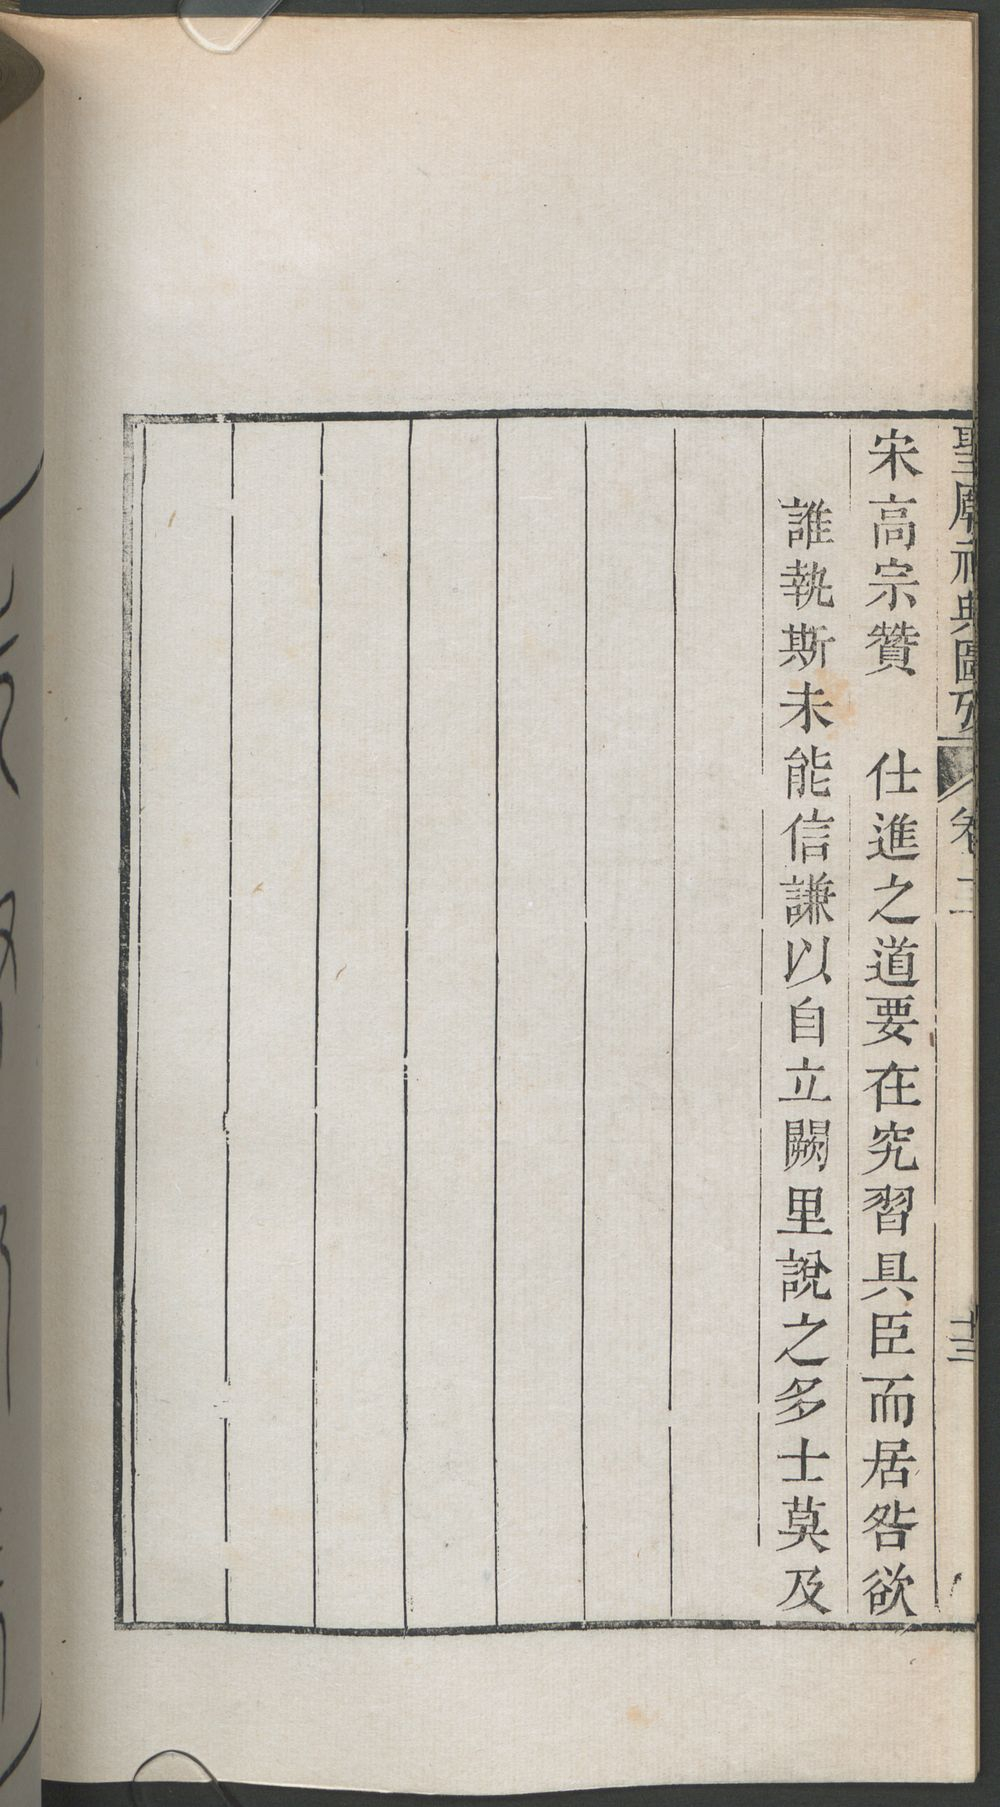 聖廟祀典圖攷 卷二 十三
宋高宗贊 仕進之道要在究習具臣而居咎欲
誰執斯未能信謙以自立闕里說之多士莫及